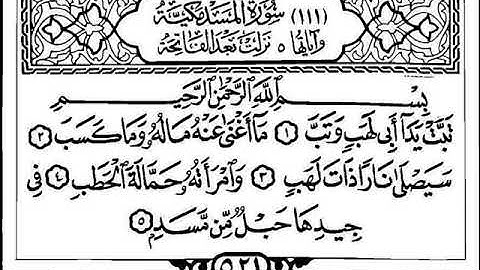 (١١١) سُورَةُ المَسَدِ مَكِّيَّة
وَآيَاتُهَا ٥ نَزَلَتْ بَعْدَ الفَاتِحَة
بِسْمِ ٱللَّهِ ٱلرَّحْمَٰنِ ٱلرَّحِيمِ
تَبَّتْ يَدَآ أَبِى لَهَبٍ وَتَبَّ ١ مَآ أَغْنَىٰ عَنْهُ مَالُهُۥ وَمَا كَسَبَ ٢
سَيَصْلَىٰ نَارًا ذَاتَ لَهَبٍ ٣ وَٱمْرَأَتُهُۥ حَمَّالَةَ ٱلْحَطَبِ ٤ فِى
جِيدِهَا حَبْلٌ مِّن مَّسَدٍۭ ٥
٥٢١